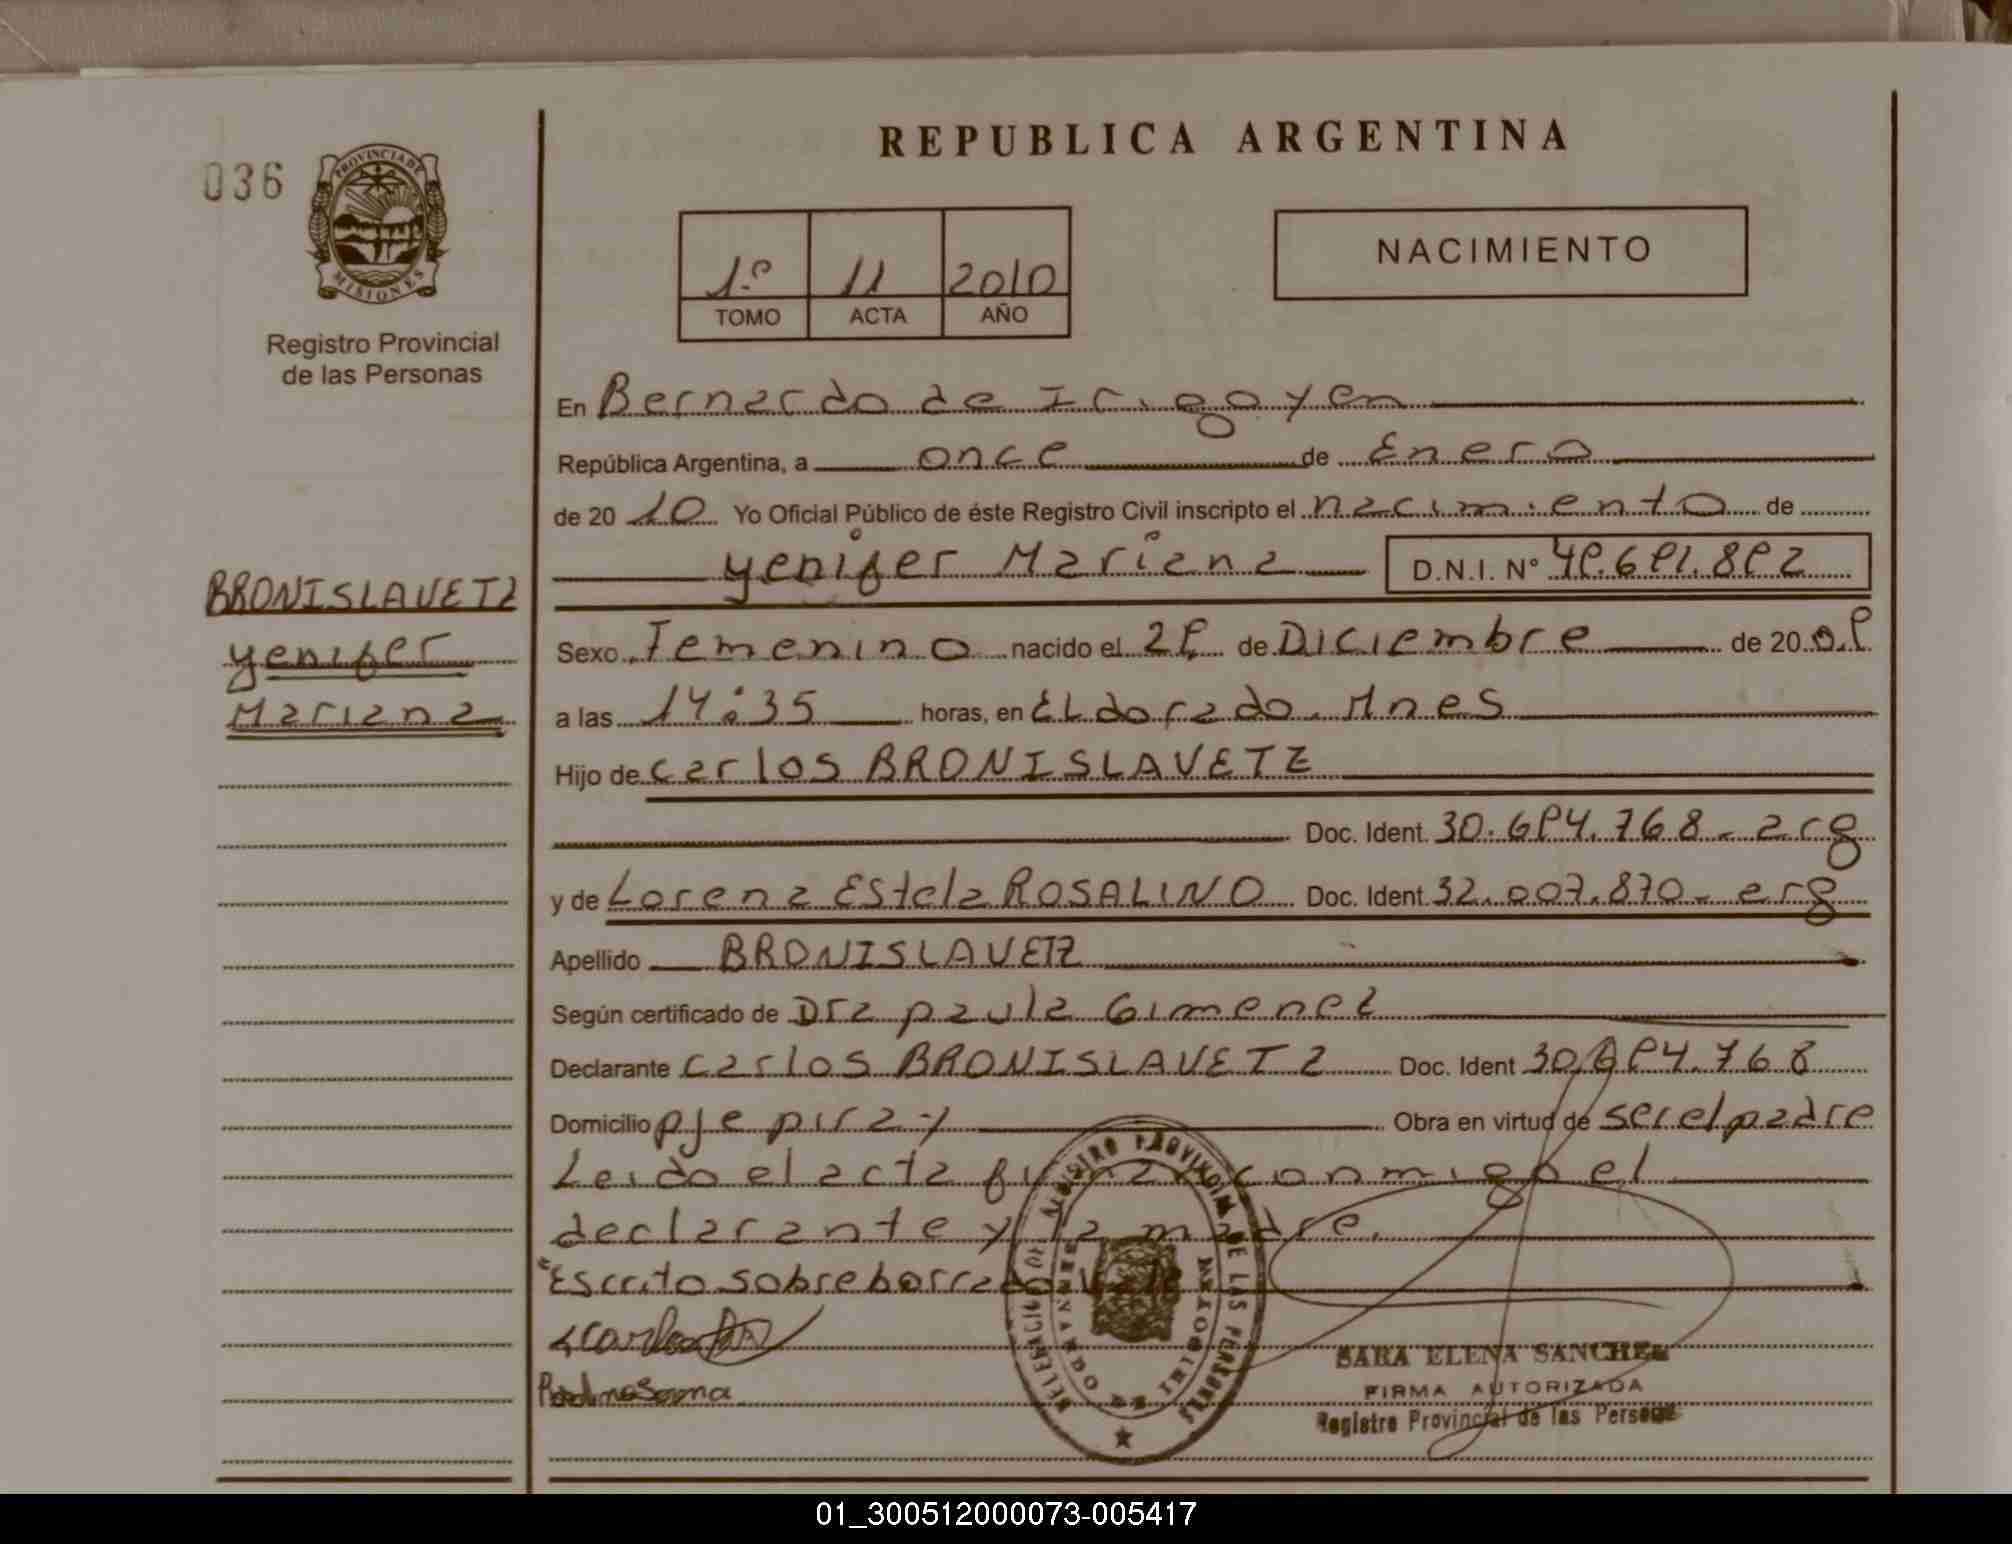 REPUBLICA ARGENTINA
036
PROVINCIA DE
MISIONES
Registro Provincial
de las Personas
1º 11 2010
TOMO ACTA AÑO
NACIMIENTO
En Bernardo de Irigoyen
República Argentina, a once de Enero
de 2010 Yo Oficial Público de éste Registro Civil inscripto el nacimiento de
yenifer Mariana D.N.I. Nº 49.691.892
BRONISLAVETZ
yenifer
Mariana
Sexo Femenino nacido el 29 de Diciembre de 2009
a las 14:35 horas, en Eldorado. Mnes
Hijo de Carlos BRONISLAVETZ
Doc. Ident. 30.694.768 - arg
y de Lorena Estela ROSALINO Doc. Ident. 32.007.870 - arg
Apellido BRONISLAVETZ
Según certificado de Dra paula Gimenez
Declarante Carlos BRONISLAVETZ Doc. Ident 30.694.768
Domicilio pje piray Obra en virtud de ser el padre
Leido el acta firman conmigo el
declarante y la madre.
"Escrito sobre borrado vale
REGISTRO PROVINCIAL DE LAS PERSONAS
DELEGACION DE
BERNARDO DE IRIGOYEN
SARA ELENA SANCHEZ
FIRMA AUTORIZADA
Registro Provincial de las Personas
01_300512000073-005417